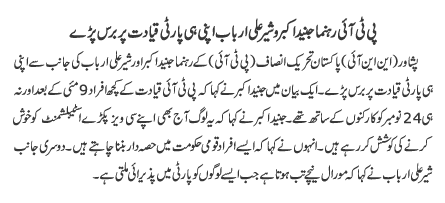 پی ٹی آئی رہنما جنید اکبر و شیر علی ارباب اپنی ہی پارٹی قیادت پر برس پڑے
پشاور (این این آئی) پاکستان تحریک انصاف (پی ٹی آئی) کے رہنما جنید اکبر اور شیر علی ارباب کی جانب سے اپنی
ہی پارٹی قیادت پر برس پڑے۔ ایک بیان میں جنید اکبر نے کہا کہ پی ٹی آئی قیادت کے کچھ افراد 9 مئی کے بعد اور نہ
ہی 24 نومبر کو کارکنوں کے ساتھ تھے۔ جنید اکبر نے کہا کہ یہ لوگ آج بھی اپنے سی ویز پکڑے اسٹیبلشمنٹ کو خوش
کرنے کی کوشش کر رہے ہیں۔ انہوں نے کہا کہ ایسے افراد قومی حکومت میں حصہ دار بننا چاہتے ہیں۔ دوسری جانب
شیر علی ارباب نے کہا کہ مورال نیچے تب ہوتا ہے جب ایسے لوگوں کو پارٹی میں پذیرائی ملتی ہے۔